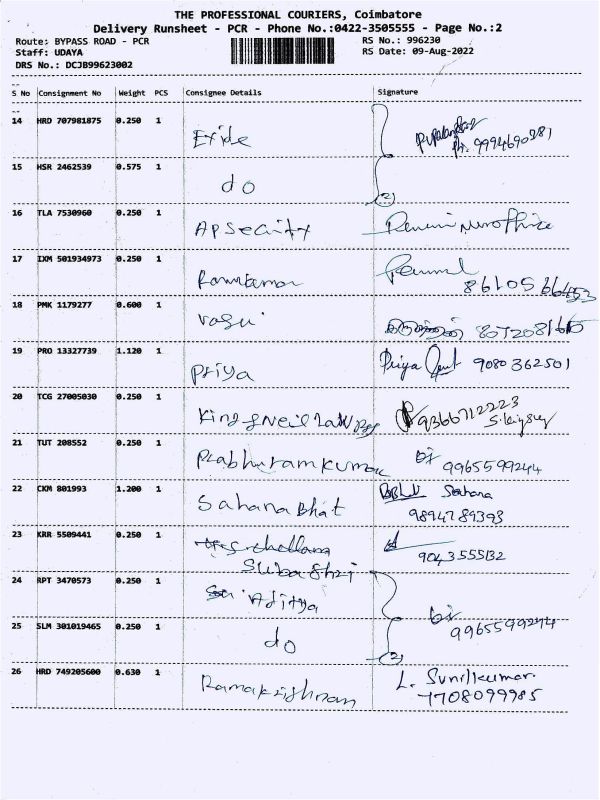 THE PROFESSIONAL COURIERS, Coimbatore
Delivery Runsheet - PCR - Phone No.:0422-3505555 - Page No.:2
Route: BYPASS ROAD - PCR RS No.: 996230
Staff: UDAYA RS Date: 09-Aug-2022
DRS No.: DCJB99623002
S No Consignment No Weight PCS Consignee Details Signature
14 HRD 707981875 0.250 1 Exide 9994690281
15 HSR 2462539 0.575 1 do (2)
16 TLA 7530960 0.250 1 AP Secairty
17 IXM 501934973 0.250 1 Ramkumar 8610566453
18 PMK 1179277 0.600 1 vasu
19 PRO 13327739 1.120 1 Priya Priya 9080362501
20 TCG 27005030 0.250 1 King 9366712223
21 TUT 208552 0.250 1 Prabhuramkumar 9965599244
22 CKM 801993 1.200 1 Sahana Bhat Sahana
9894789393
23 KRR 5509441 0.250 1 9043555132
Suba Shri
24 RPT 3470573 0.250 1 Sai Aditya 9965599244
25 SLM 301019465 0.250 1 do (2)
26 HRD 749205600 0.630 1 Ramakrishnan L. Sunilkumar
7708099985